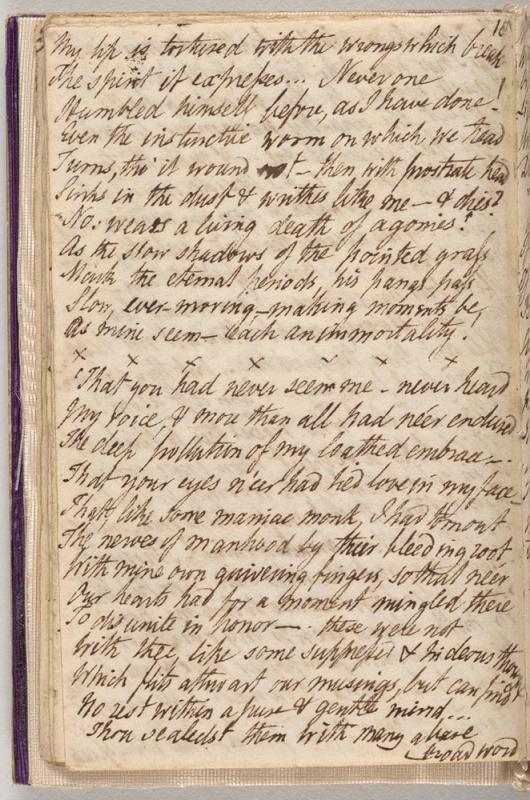 18
My lip is tortured with the wrongs which break
The spirit it expresses... Never one
Humbled himself before, as I have done!
Even the instinctive worm on which we tread
Turns, tho' it wound not — then with prostrate head
Sinks in the dust & writhes like me — & dies?
No: wears a living death of agonies!
As the slow shadows of the pointed grass
Mark the eternal periods, his pangs pass
Slow, ever-moving, — making moments be
As mine seem — each an immortality!
x x x x x x x
"That you had never seen me — never heard
My voice, & more than all had ne'er endured
The deep pollution of my loathed embrace —
That your eyes ne'er had lied love in my face —
That, like some maniac monk, I had torn out
The nerves of manhood by their bleeding root
With mine own quivering fingers, so that ne'er
Our hearts had for a moment mingled there
To disunite in horror — these were not
With thee, like some suppressed & hideous thought
Which flits athwart our musings, but can find
No rest within a pure & gentle mind...
Thou sealedst them with many a bare
broad word